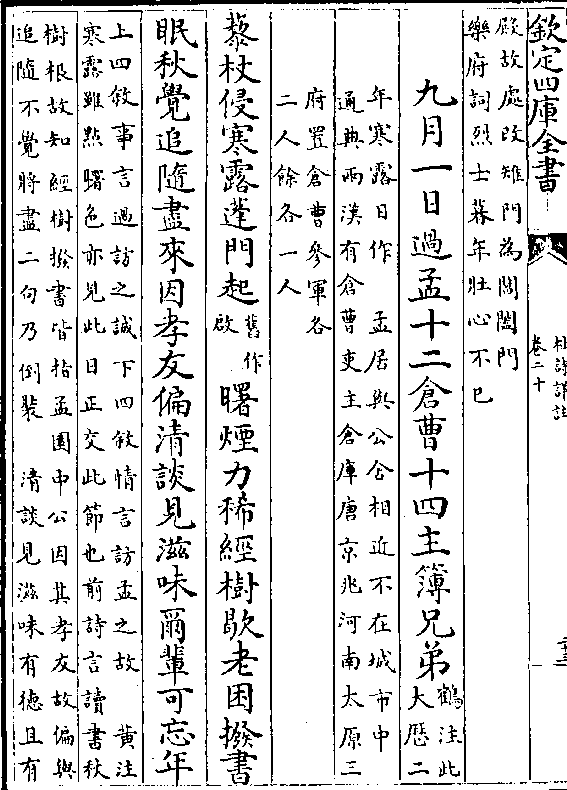 欽定四庫全書
杜詩詳註
卷二十
二十三
殿故處改雉門為閶闔門
樂府詞烈士暮年壯心不已
九月一日過孟十二倉曹十四主簿兄弟
鶴注此
大歷二
年寒露日作 孟居與公舍相近不在城市中
通典兩漢有倉曹吏主倉庫唐京兆河南太原三
府置倉曹參軍各
二人餘各一人
藜杖侵寒露蓬門起
舊作
啟
曙煙力稀經樹歇老困撥書
眠秋覺追隨盡來因孝友偏清談見滋味爾輩可忘年
上四敘事言過訪之誠下四敘情言訪孟之故 黃注
寒露雖點曙色亦見此日正交此節也前詩言讀書秋
樹根故知經樹撥書皆指孟園中公因其孝友故偏與
追隨不覺將盡二句乃倒裝 清談見滋味有德且有